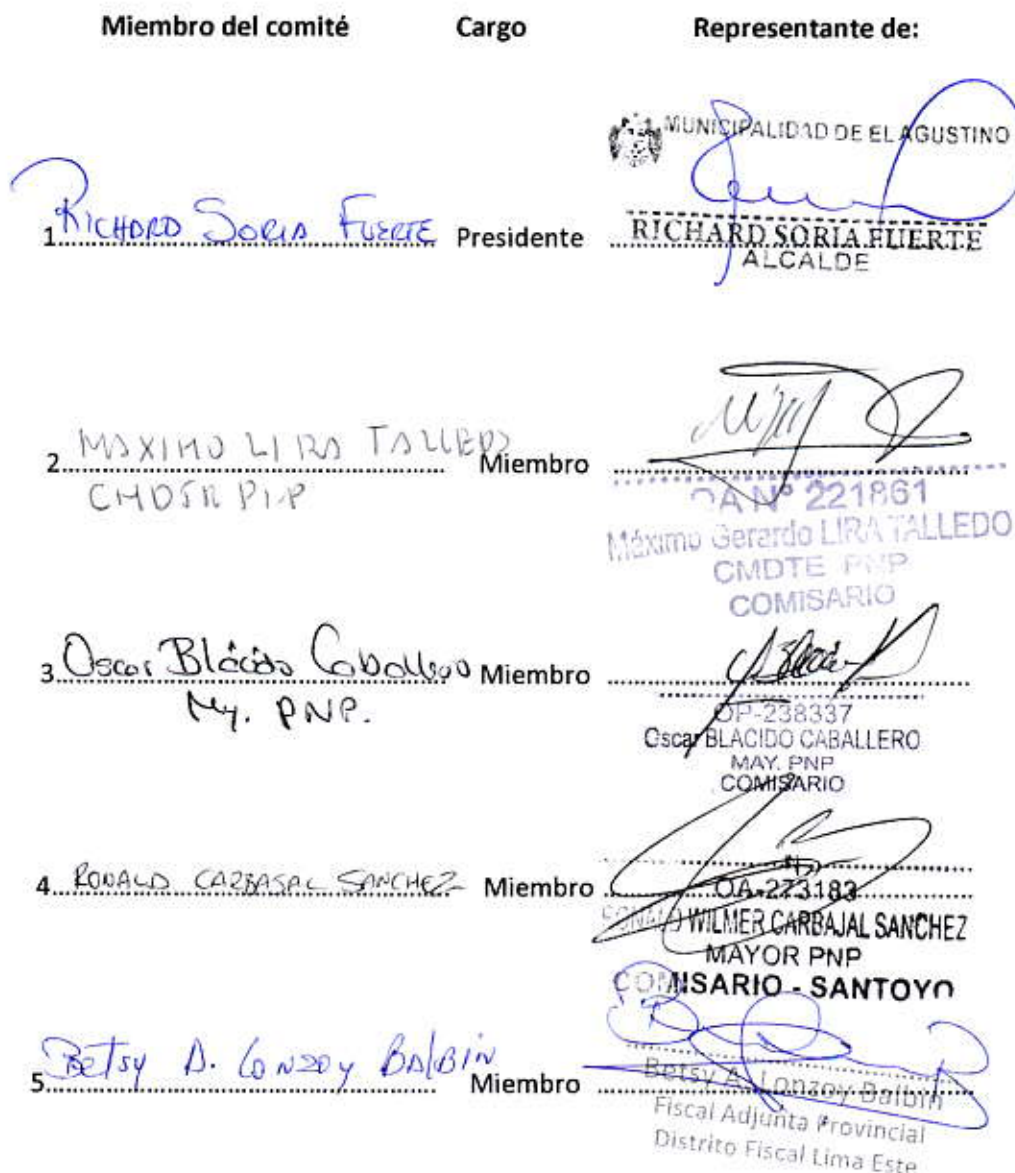 Miembro del comité Cargo Representante de:
MUNICIPALIDAD DE EL AGUSTINO
1 RICHARD SORIA FUERTE Presidente
RICHARD SORIA FUERTE
ALCALDE
2 MAXIMO LIRA TALLEDO Miembro
OA Nº 221861
CMDTE PNP
Máximo Gerardo LIRA TALLEDO
CMDTE PNP
COMISARIO
3 Oscar Blácido Caballero Miembro
My. PNP.
OP-238337
Oscar BLACIDO CABALLERO
MAY. PNP
COMISARIO
4 RONALD CARBAJAL SANCHEZ Miembro
OA-273183
RONALD WILMER CARBAJAL SANCHEZ
MAYOR PNP
COMISARIO - SANTOYO
5 BETSY A. LONZOY BALBIN Miembro
Betsy A. Lonzoy Balbin
Fiscal Adjunta Provincial
Distrito Fiscal Lima Este